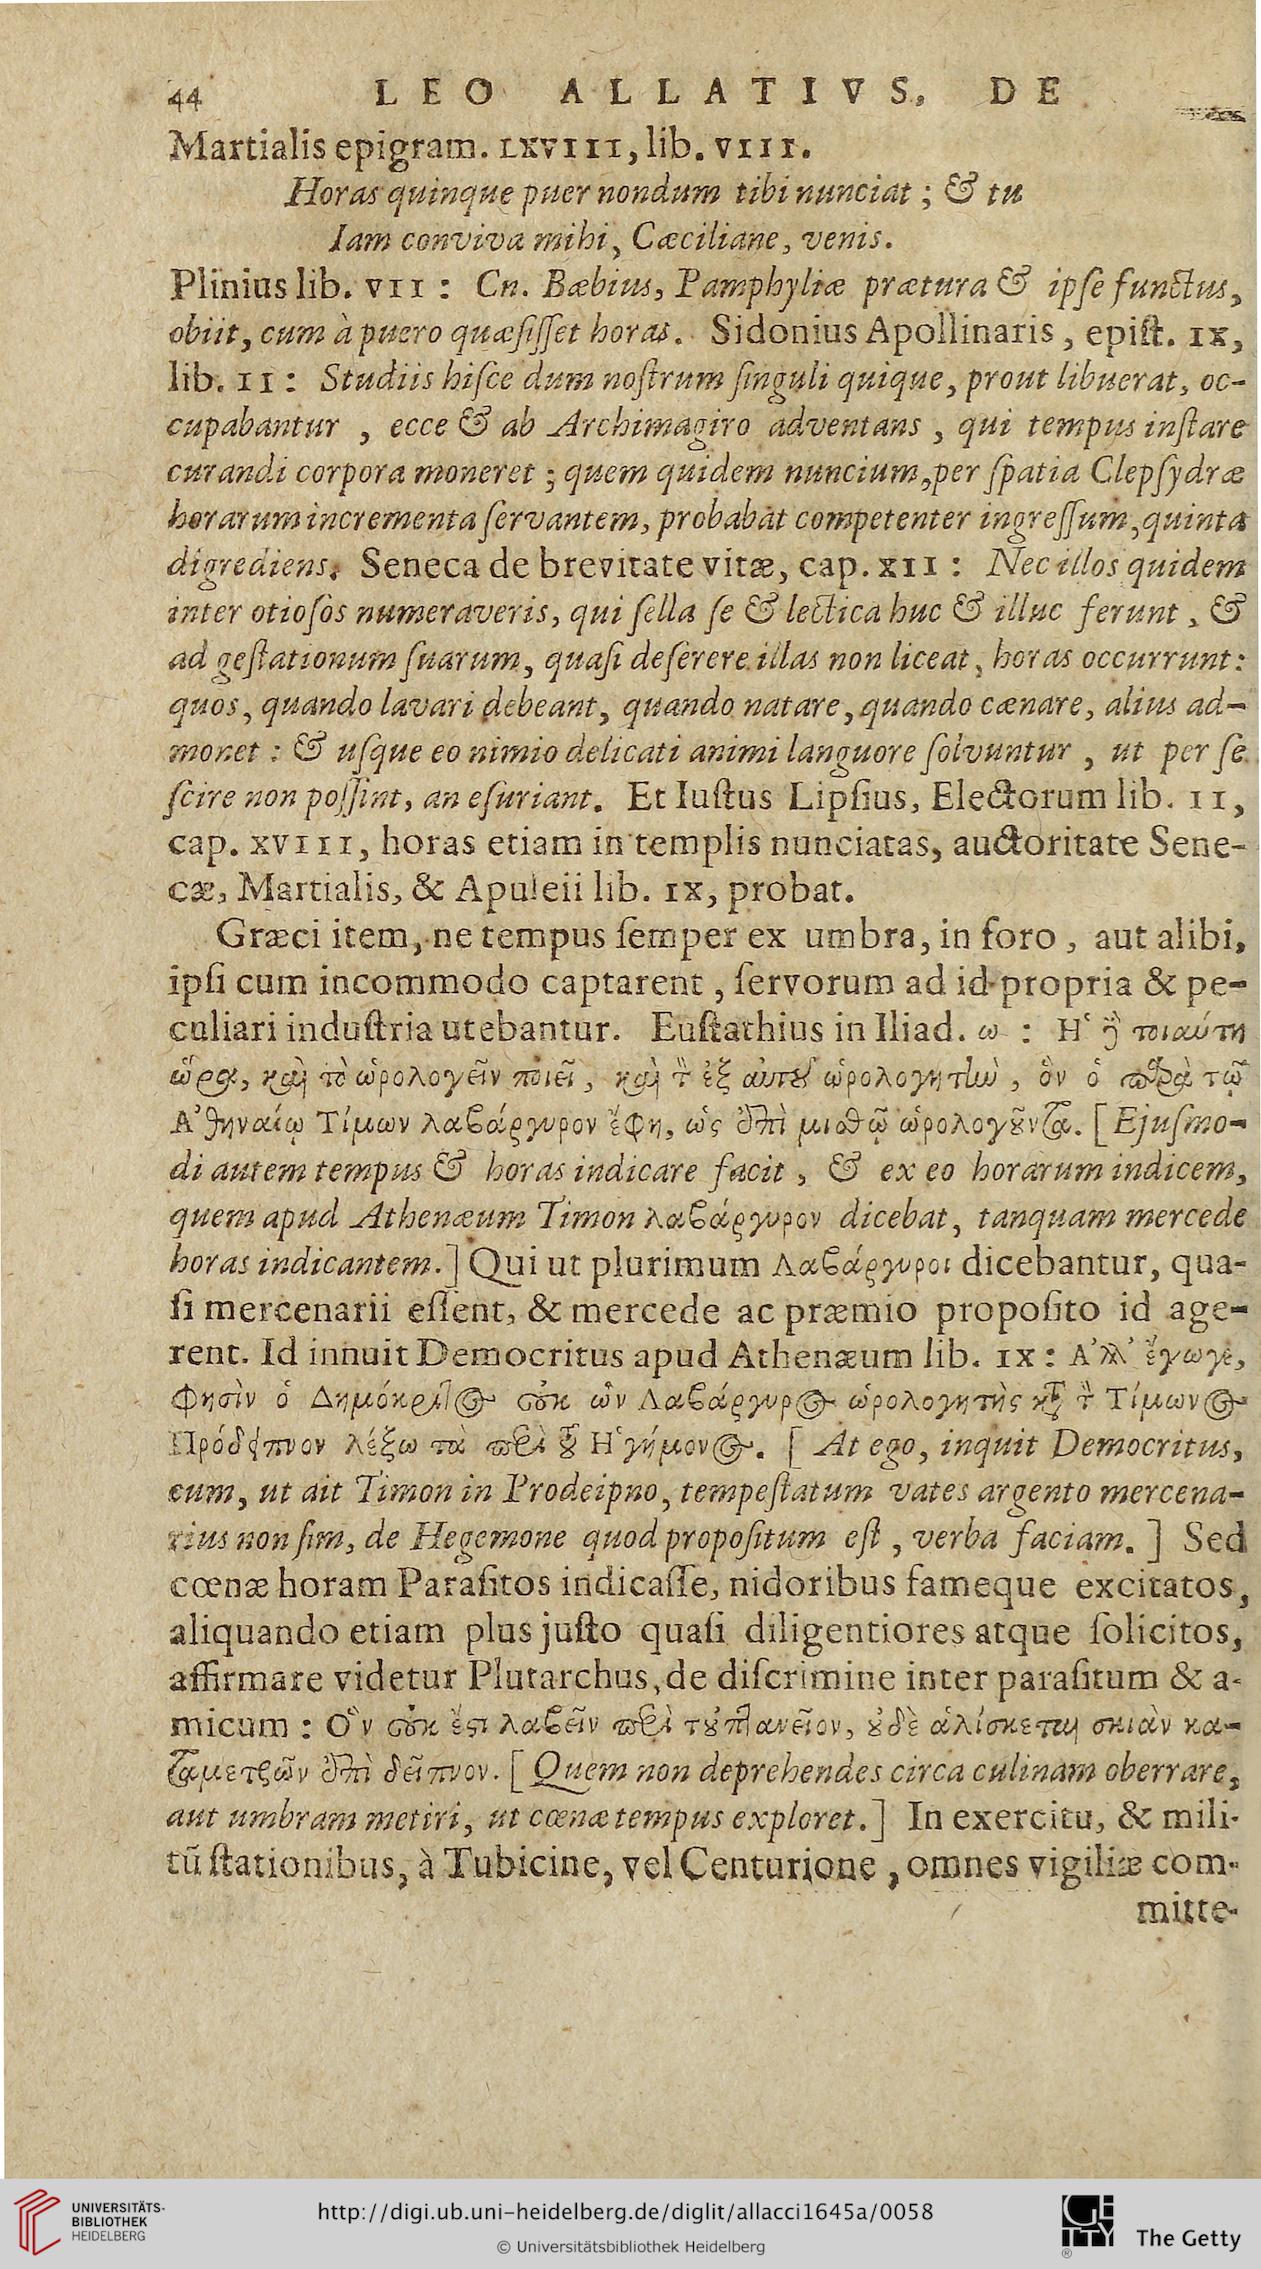 44 LEO ALLATIVS, DE
Martialis epigram. LXVIII, lib. VIII.
Horas quinque puer nondum tibi nunciat ; & tu
Iam conviva mihi, Cæciliane, venis.
Plinius lib. VII : Cn. Bæbius, Pamphyliæ prætura & ipſe functus,
obiit, cum à puero quæſiſſet horas. Sidonius Apollinaris, epiſt. IX,
lib. II : Studiis hiſce dum noſtrum ſinguli quique, prout libuerat, oc-
cupabantur , ecce & ab Archimagiro adventans , qui tempus inſtare
curandi corpora moneret ; quem quidem nuncium, per ſpatia Clepſydræ
horarum incrementa ſervantem, probabat competenter ingreſſum, quinta
digrediens. Seneca de brevitate vitæ, cap. XII : Nec illos quidem
inter otioſos numeraveris, qui ſella ſe & lectica huc & illuc ferunt , &
ad geſtationum ſuarum, quaſi deſerere illas non liceat, horas occurrunt:
quos, quando lavari debeant, quando natare, quando cænare, alius ad-
monet : & uſque eo nimio delicati animi languore ſolvuntur , ut per ſe
ſcire non poſſint, an eſuriant. Et Iuſtus Lipſius, Electorum lib. II,
cap. XVIII, horas etiam in templis nunciatas, auctoritate Sene-
cæ, Martialis, & Apuleii lib. IX, probat.
Græci item, ne tempus ſemper ex umbra, in foro , aut alibi,
ipſi cum incommodo captarent , ſervorum ad id propria & pe-
culiari induſtria utebantur. Euſtathius in Iliad. ω : Η῾ δὲ τοιαύτη
ὥρα, καὶ τὸ ὡρολογεῖν ποιεῖ, καὶ τὸν ἐξ αὐτοῦ ὡρολογητὴν, ὃν ὁ παρὰ τῷ
Α᾿θηναίῳ Τίμων λαβάργυρον ἔφη, ὡς ἐπὶ μισθῷ ὡρολογοῦντα. [ Ejuſmo-
di autem tempus & horas indicare facit , & ex eo horarum indicem,
quem apud Athenæum Timon λαβάργυρον dicebat, tanquam mercede
horas indicantem. ] Qui ut plurimum Λαβάργυροι dicebantur, qua-
ſi mercenarii eſſent, & mercede ac præmio propoſito id age-
rent. Id innuit Democritus apud Athenæum lib. IX : Α᾿λλ᾿ ἔγωγε,
φησὶν ὁ Δημόκριτος οὐκ ὢν Λαβάργυρος ὡρολογητὴς κατὰ τὸν Τίμωνος
Πρόδειπνον λέξω τὰ περὶ τοῦ Η῾γήμονος. [ At ego, inquit Democritus,
cum, ut ait Timon in Prodeipno, tempeſtatum vates argento mercena-
rius non ſim, de Hegemone quod propoſitum eſt , verba faciam. ] Sed
cœnæ horam Paraſitos indicaſſe, nidoribus fameque excitatos,
aliquando etiam plus juſto quaſi diligentiores atque ſolicitos,
affirmare videtur Plutarchus, de diſcrimine inter paraſitum & a-
micum : Ο῝ν οὐκ ἔστι λαβεῖν περὶ τοὐπτανεῖον, οὐδὲ ἁλίσκεται σκιὰν κα-
ταμετρῶν ἐπὶ δεῖπνον. [ Quem non deprehendes circa culinam oberrare,
aut umbram metiri, ut cœnæ tempus exploret. ] In exercitu, & mili-
tũ ſtationibus, à Tubicine, vel Centurione , omnes vigiliæ com-
mitte-
UNIVERSITÄTS-
BIBLIOTHEK
HEIDELBERG
http://digi.ub.uni-heidelberg.de/diglit/allacci1645a/0058
© Universitätsbibliothek Heidelberg
The Getty